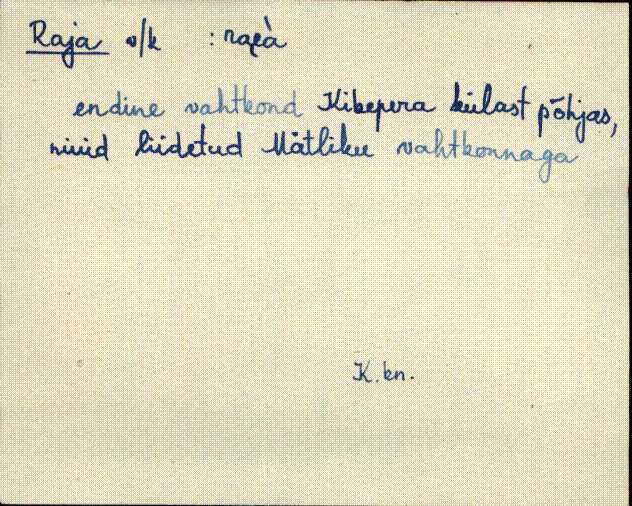 Raja v/k : raea�barà
endine vahtkond Kibepera külast põhjas,
nüüd liidetud Mätliku vahtkonnaga
K. kn.